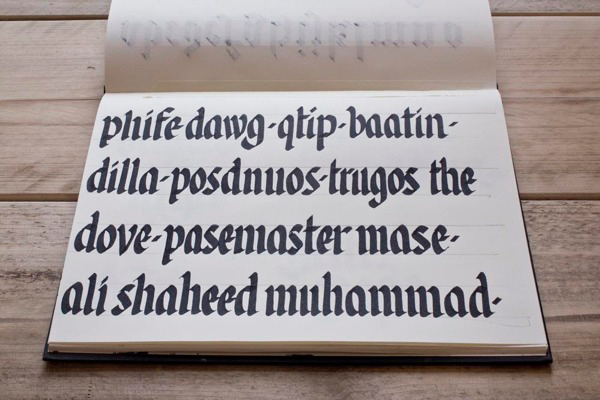 phife dawg-qtip-baatin-
dilla-posdnuos-trugos the
dove-pasemaster mase-
ali shaheed muhammad-